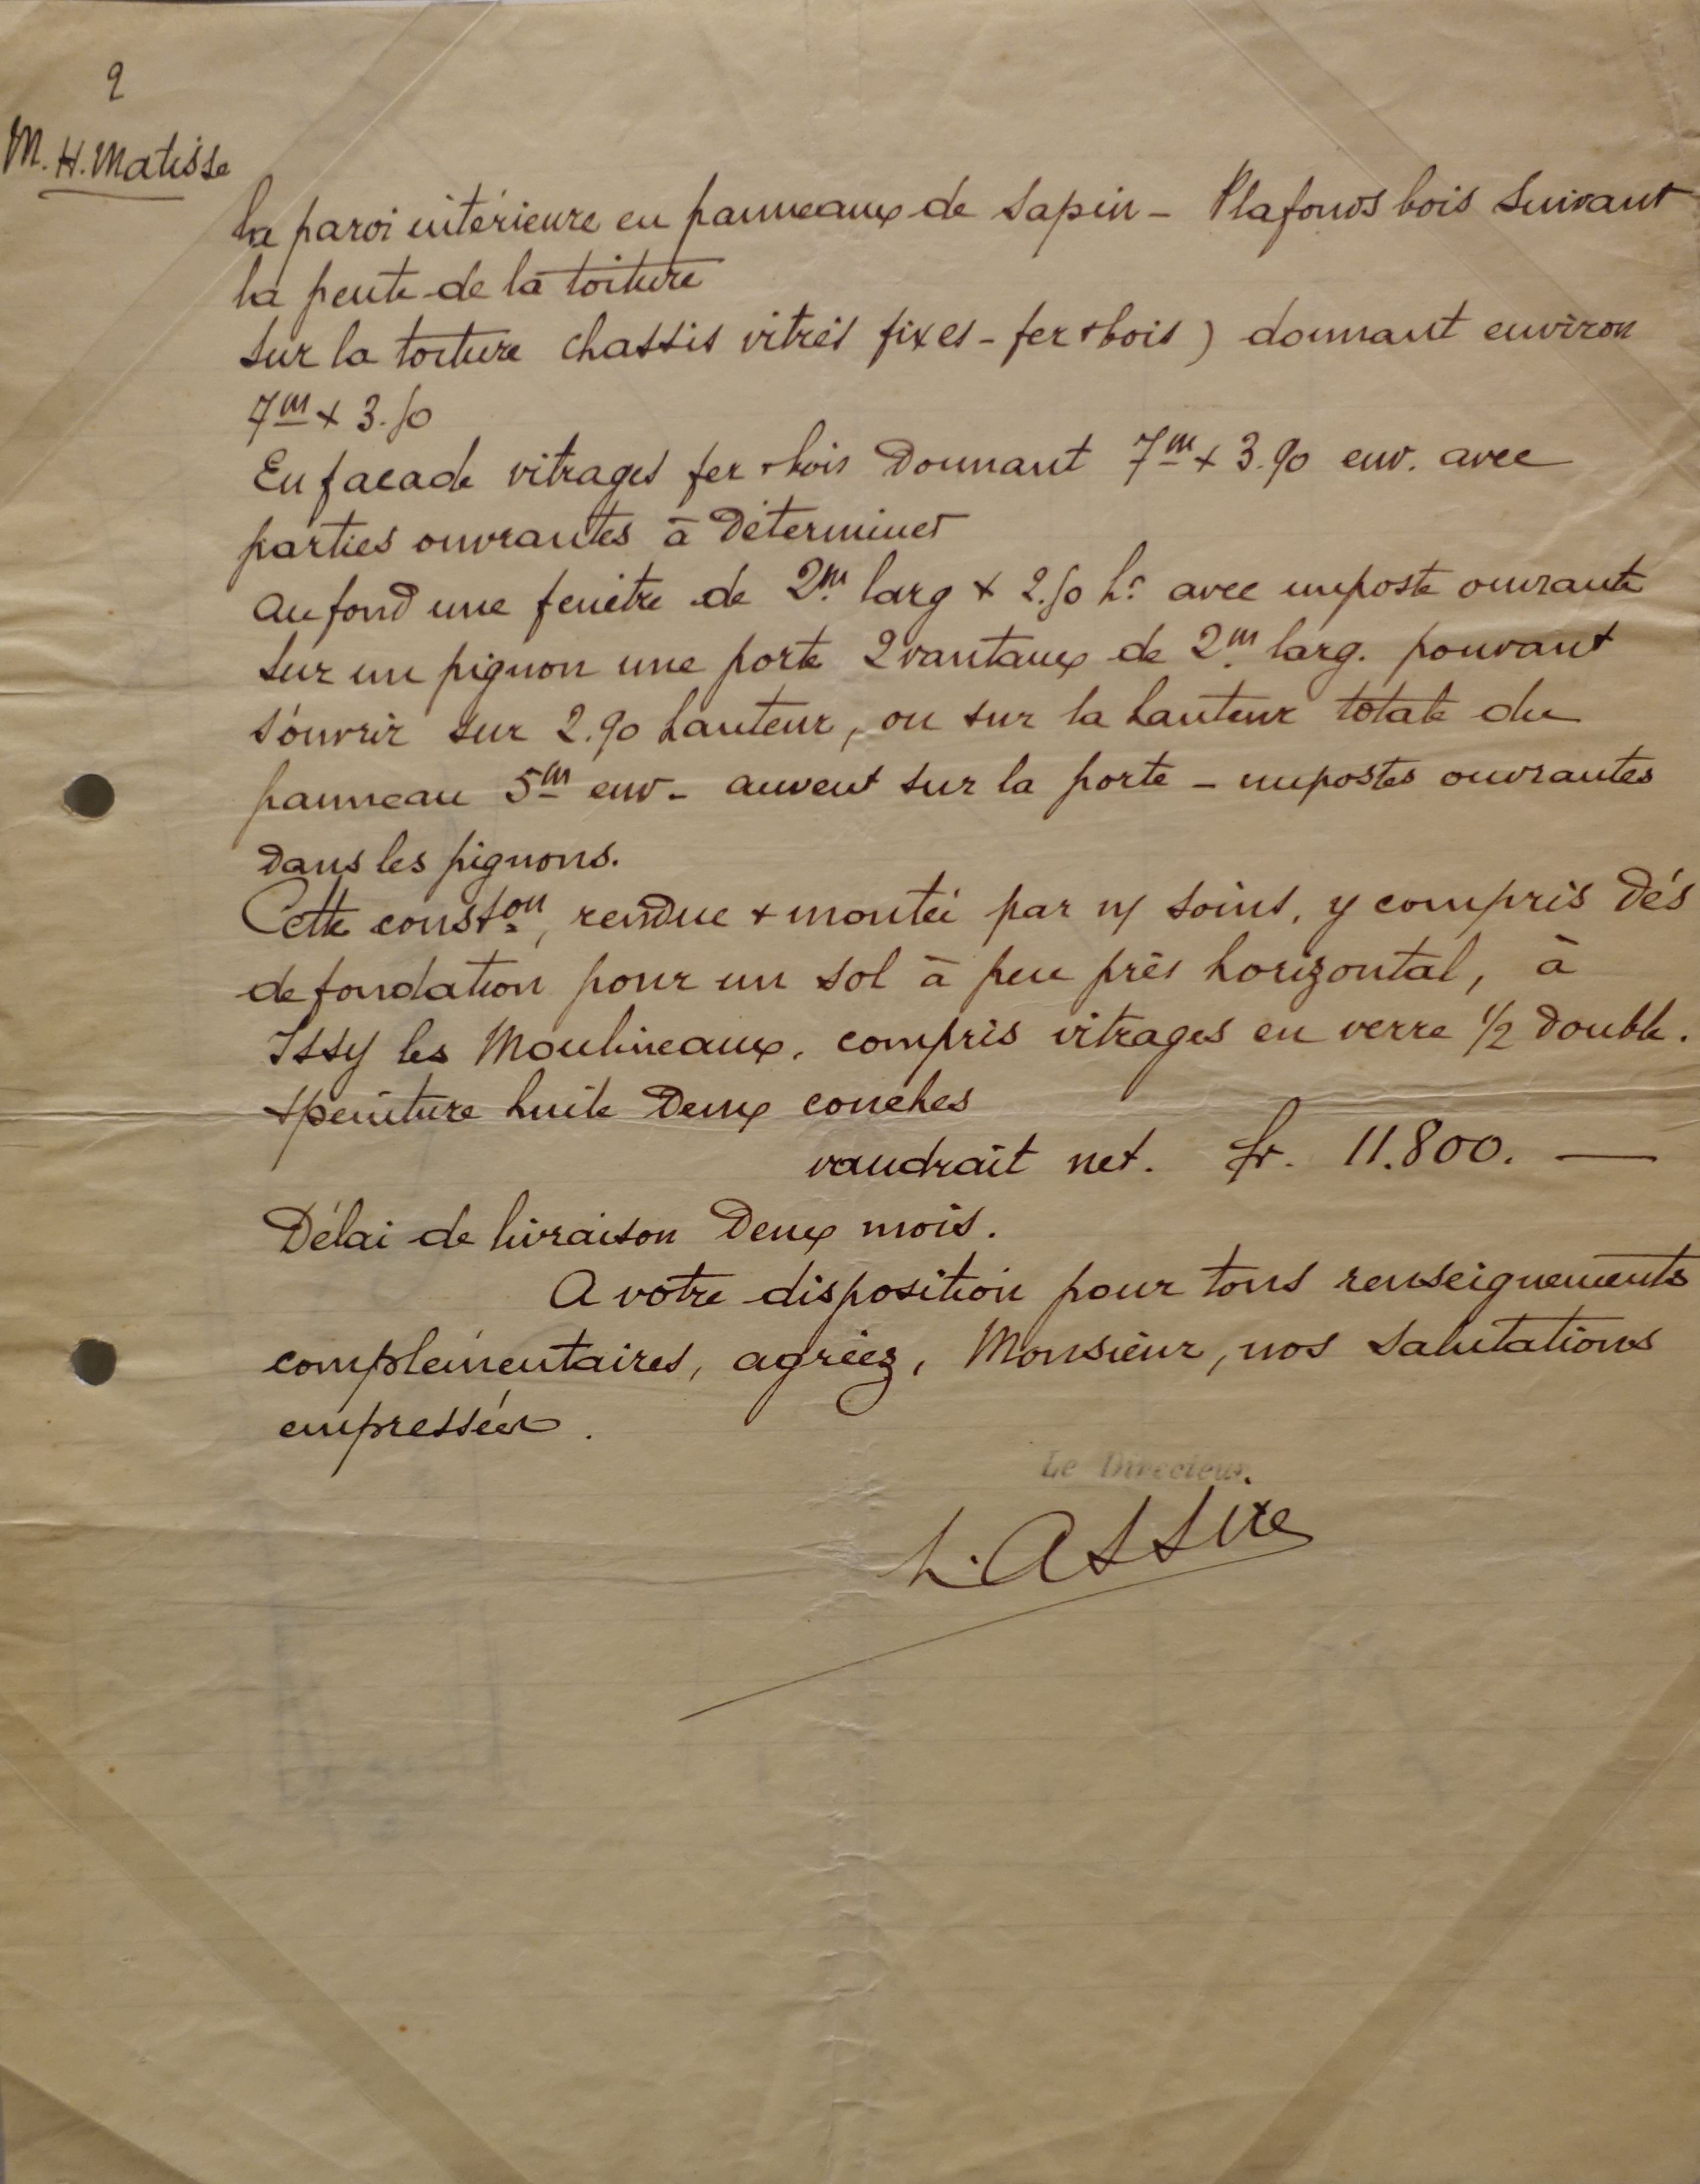 2
M. H. Matisse
la paroi intérieure en panneaux de sapin - Plafonds bois suivant
la pente de la toiture
Sur la toiture chassis vitrés fixes - fer & bois ) donnant environ
7m x 3.50
En facade vitrages fer & bois donnant 7m x 3.90 env. avec
parties ouvrantes à déterminer
au fond une fenêtre de 2m larg x 2.50 hr avec imposte ouvrante
sur un pignon une porte 2 vantaux de 2m larg. pouvant
s'ouvrir sur 2.90 hauteur, ou sur la hauteur totale du
panneau 5m env - auvent sur la porte - impostes ouvrantes
dans les pignons.
Cette conston, rendue & montée par n/ soins, y compris dés
de fondation pour un sol à peu près horizontal, à
Issy les Moulineaux, compris vitrages en verre 1/2 double.
& peinture huile deux couches
vaudrait net. fr. 11.800. —
Délai de livraison deux mois.
A votre disposition pour tous renseignements
complémentaires, agréez, Monsieur, nos salutations
empressées.
Le Directeur.
L. Assire